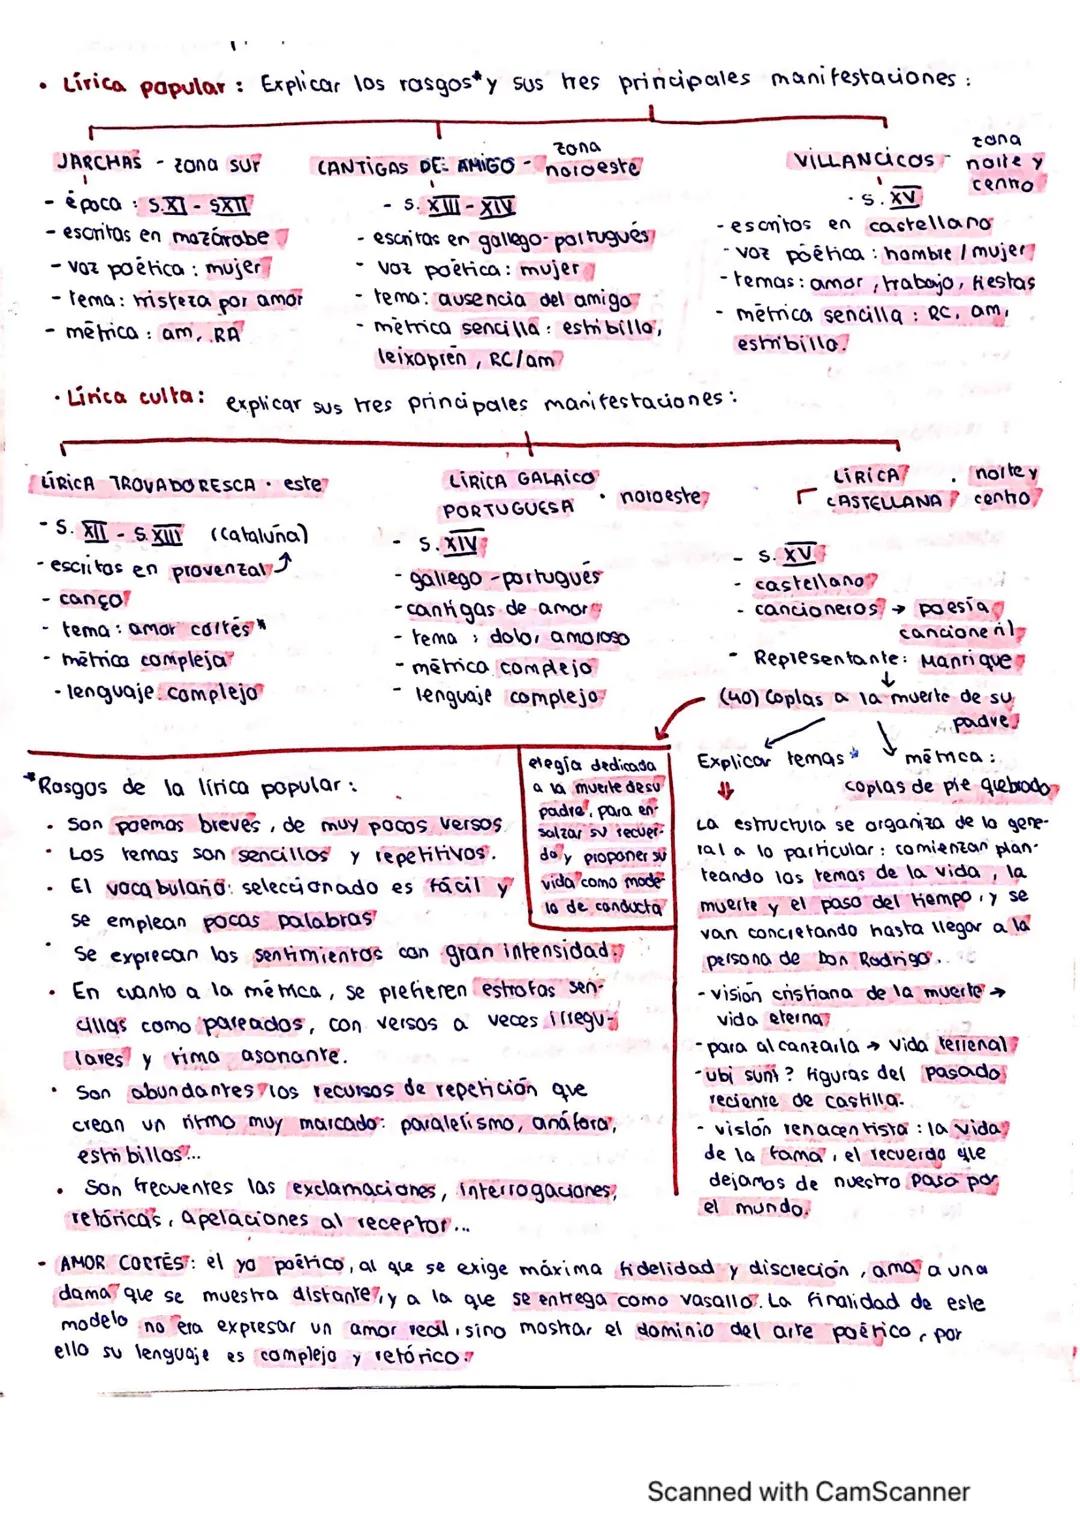 • Lírica popular: Explicar los rasgos* y sus tres principales manifestaciones:
JARCHAS - zona sur
- época: S.XI - SXII
- escritas en mozárabe
- voz poética: mujer
- tema: tristeza por amor
- métrica: am, RA
CANTIGAS DE AMIGO - zona noroeste
- S. XIII - XIV
- escritas en gallego-portugués
- voz poética: mujer
- tema: ausencia del amigo
- métrica sencilla: estribillo,
leixaprén, RC/am
VILLANCICOS - zona norte y centro
- S. XV
- escritos en castellano
- voz poética: hombre / mujer
- temas: amor, trabajo, fiestas
- métrica sencilla: RC, am,
estribillo.
• Lírica culta: explicar sus tres principales manifestaciones:
LÍRICA TROVADORESCA • este
- S. XII - S. XIII (Cataluña)
- escritos en provenzal ↑
- canço
- tema: amor cortés *
- métrica compleja
- lenguaje complejo
LÍRICA GALAICO
PORTUGUESA • noroeste
- S. XIV
- gallego-portugués
- cantigas de amor
- tema: dolor amoroso
- métrica compleja
- lenguaje complejo
LÍRICA CASTELLANA • norte y centro
- S. XV
- castellano
- cancioneros → poesía
cancioneril
- Representante: Manrique
↓
(40) Coplas a la muerte de su
padre
Explicar temas *
métrica:
coplas de pie quebrado
elegía dedicada
a la muerte de su
padre, para en-
salzar su recuer-
do y proponer su
vida como mode-
lo de conducta
La estructura se organiza de lo gene-
ral a lo particular: comienzan plan-
teando los temas de la vida, la
muerte y el paso del tiempo, y se
van concretando hasta llegar a la
persona de Don Rodrigo.
- visión cristiana de la muerte →
vida eterna
- para alcanzarla → vida terrenal
- Ubi sunt? figuras del pasado
reciente de Castilla.
- visión renacentista: la vida
de la fama, el recuerdo que
dejamos de nuestro paso por
el mundo.
*Rasgos de la lírica popular:
• Son poemas breves, de muy pocos versos
• Los temas son sencillos y repetitivos.
• El vocabulario seleccionado es fácil y
se emplean pocas palabras
• Se expresan los sentimientos con gran intensidad.
• En cuanto a la métrica, se prefieren estrofas sen-
cillas como pareados, con versos a veces irregu-
lares y rima asonante.
• Son abundantes los recursos de repetición que
crean un ritmo muy marcado: paralelismo, anáfora,
estribillos...
• Son frecuentes las exclamaciones, interrogaciones,
retóricas, apelaciones al receptor...
• AMOR CORTÉS: el yo poético, al que se exige máxima fidelidad y discreción, ama a una
dama que se muestra distante, y a la que se entrega como vasallo. La finalidad de este
modelo no era expresar un amor real, sino mostrar el dominio del arte poético, por
ello su lenguaje es complejo y retórico.
Scanned with CamScanner